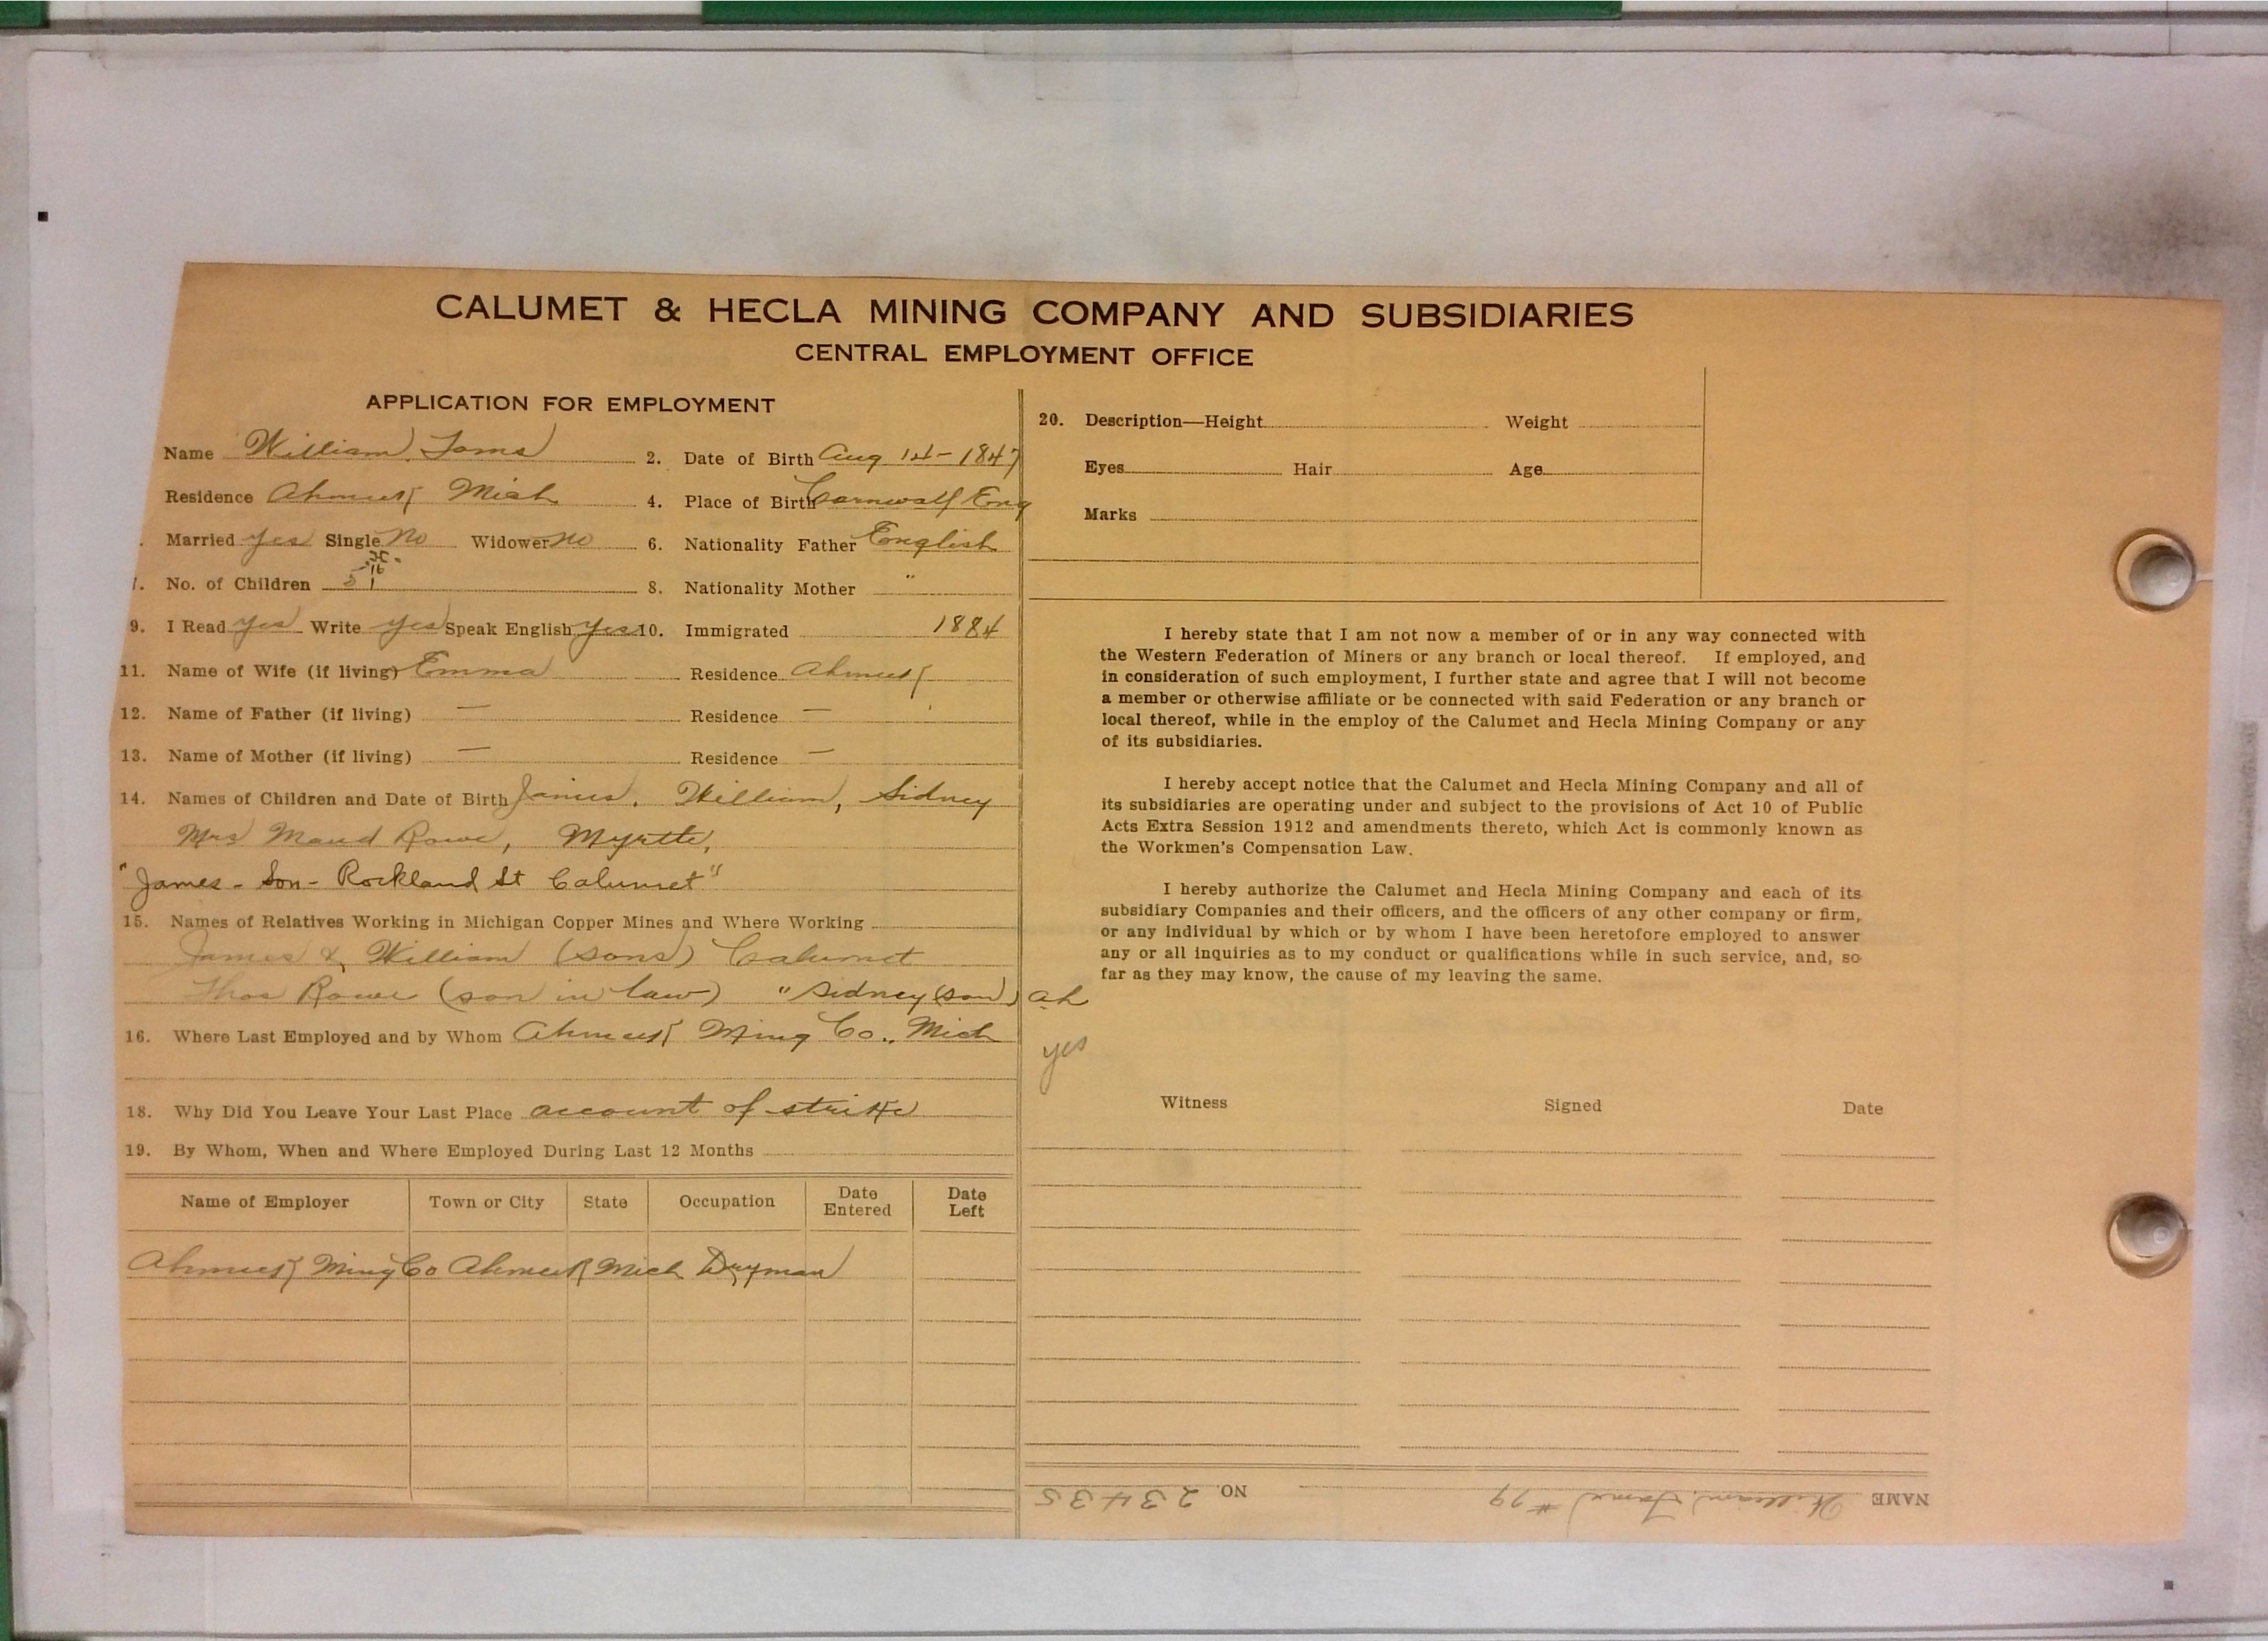 CALUMET & HECLA MINING COMPANY AND SUBSIDIARIES
CENTRAL EMPLOYMENT OFFICE
APPLICATION FOR EMPLOYMENT
Name William Toms 2. Date of Birth Aug 14 - 1847
Residence Ahmeek Mich 4. Place of Birth Cornwall Eng
Married yes Single No Widower No 6. Nationality Father English
7. No. of Children 5 8. Nationality Mother "
9. I Read yes Write yes Speak English yes 10. Immigrated 1884
11. Name of Wife (if living) Emma Residence Ahmeek
12. Name of Father (if living) — Residence —
13. Name of Mother (if living) — Residence —
14. Names of Children and Date of Birth James, William, Sidney
Mrs Maud Rowe, Myrtle,
"James - Son - Rockland St Calumet"
15. Names of Relatives Working in Michigan Copper Mines and Where Working
James & William (sons) Calumet
Thos Rowe (son in law) " Sidney (son) Ah
16. Where Last Employed and by Whom Ahmeek Ming Co., Mich
yes
18. Why Did You Leave Your Last Place account of strike
19. By Whom, When and Where Employed During Last 12 Months
Name of Employer Town or City State Occupation Date Entered Date Left
Ahmeek Ming Co Ahmeek Mich Dryman
20. Description—Height Weight
Eyes Hair Age
Marks
I hereby state that I am not now a member of or in any way connected with
the Western Federation of Miners or any branch or local thereof. If employed, and
in consideration of such employment, I further state and agree that I will not become
a member or otherwise affiliate or be connected with said Federation or any branch or
local thereof, while in the employ of the Calumet and Hecla Mining Company or any
of its subsidiaries.
I hereby accept notice that the Calumet and Hecla Mining Company and all of
its subsidiaries are operating under and subject to the provisions of Act 10 of Public
Acts Extra Session 1912 and amendments thereto, which Act is commonly known as
the Workmen's Compensation Law.
I hereby authorize the Calumet and Hecla Mining Company and each of its
subsidiary Companies and their officers, and the officers of any other company or firm,
or any individual by which or by whom I have been heretofore employed to answer
any or all inquiries as to my conduct or qualifications while in such service, and, so
far as they may know, the cause of my leaving the same.
Witness Signed Date
NAME William Toms #79 NO. 23435